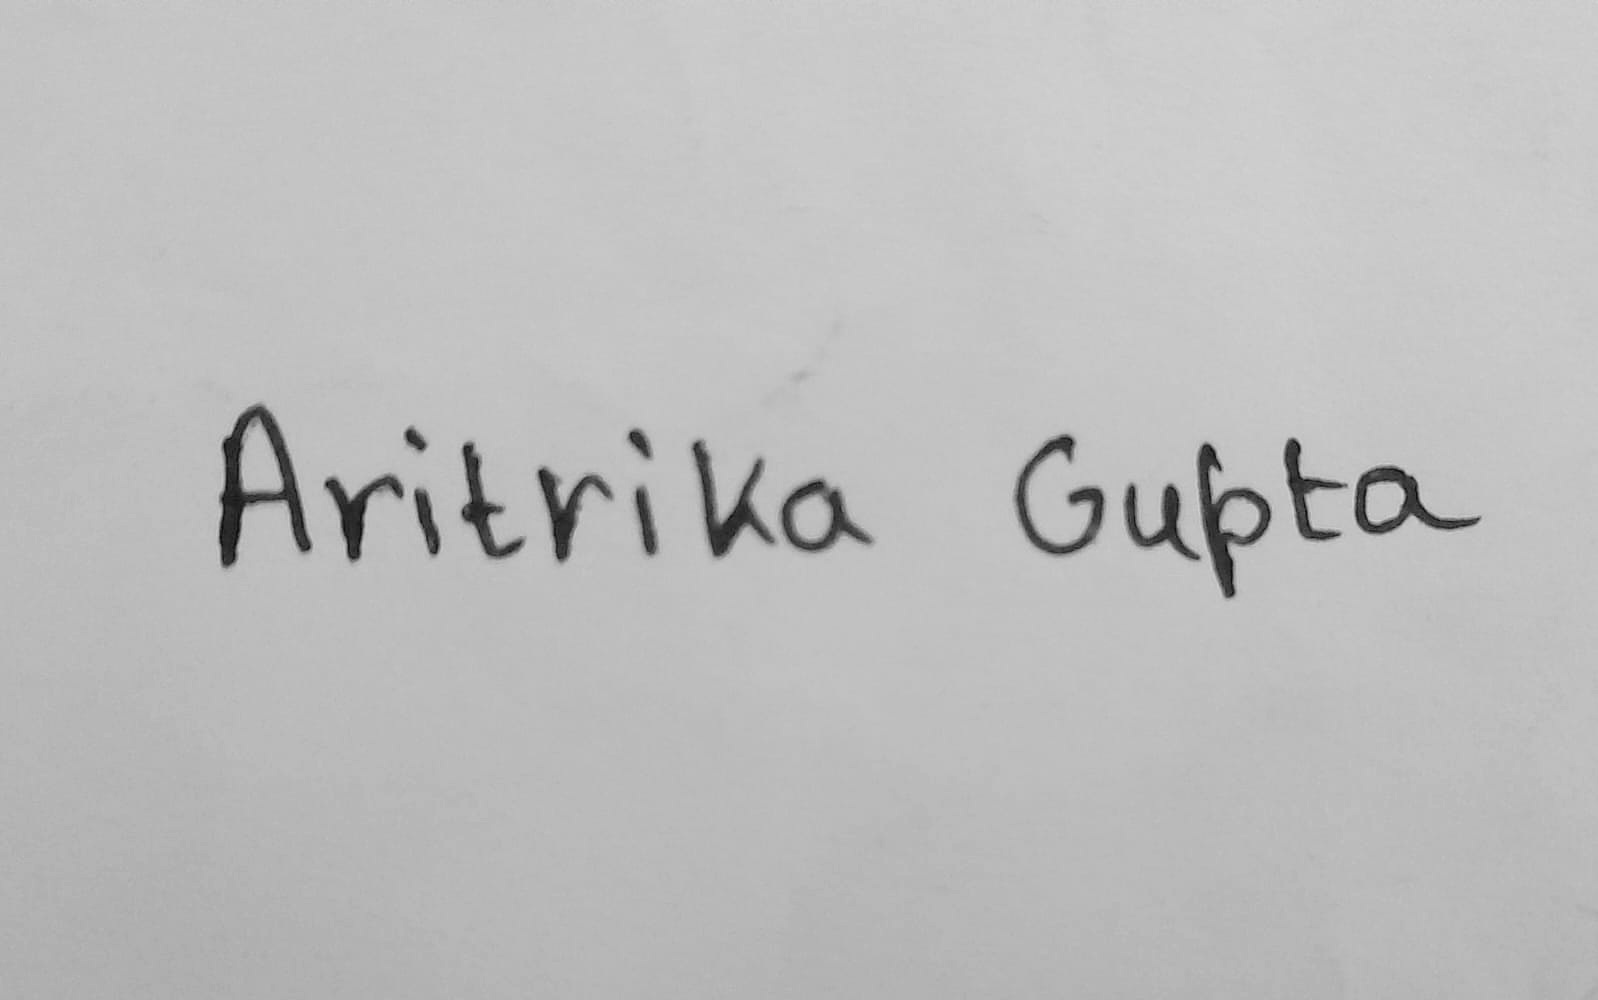 Aritrika Gupta